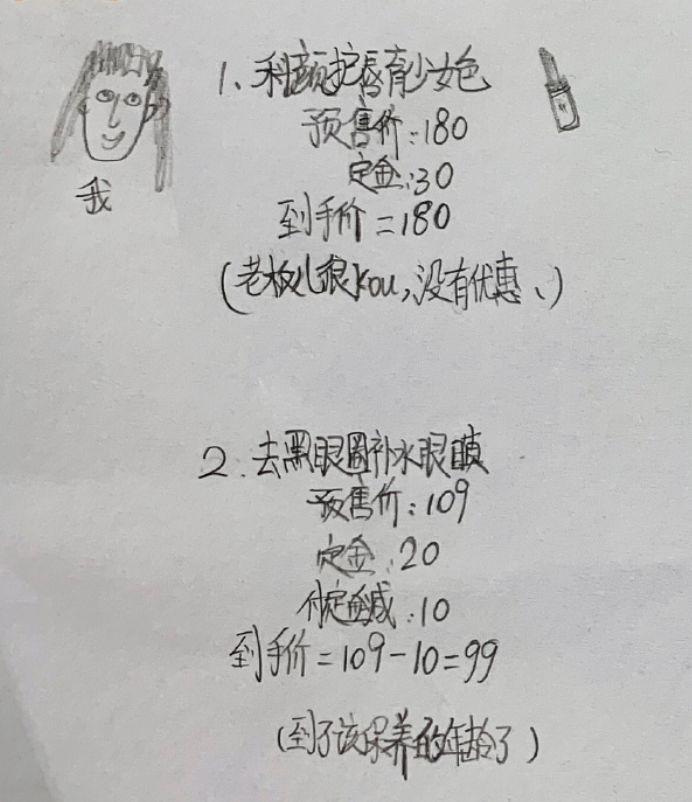 1、利颜护唇膏少女色
预售价:180
定金:30
到手价=180
我
(老板儿很kou,没有优惠、)
2.去黑眼圈补水眼膜
预售价:109
定金:20
付定减:10
到手价=109-10=99
(到了该保养的年龄了)